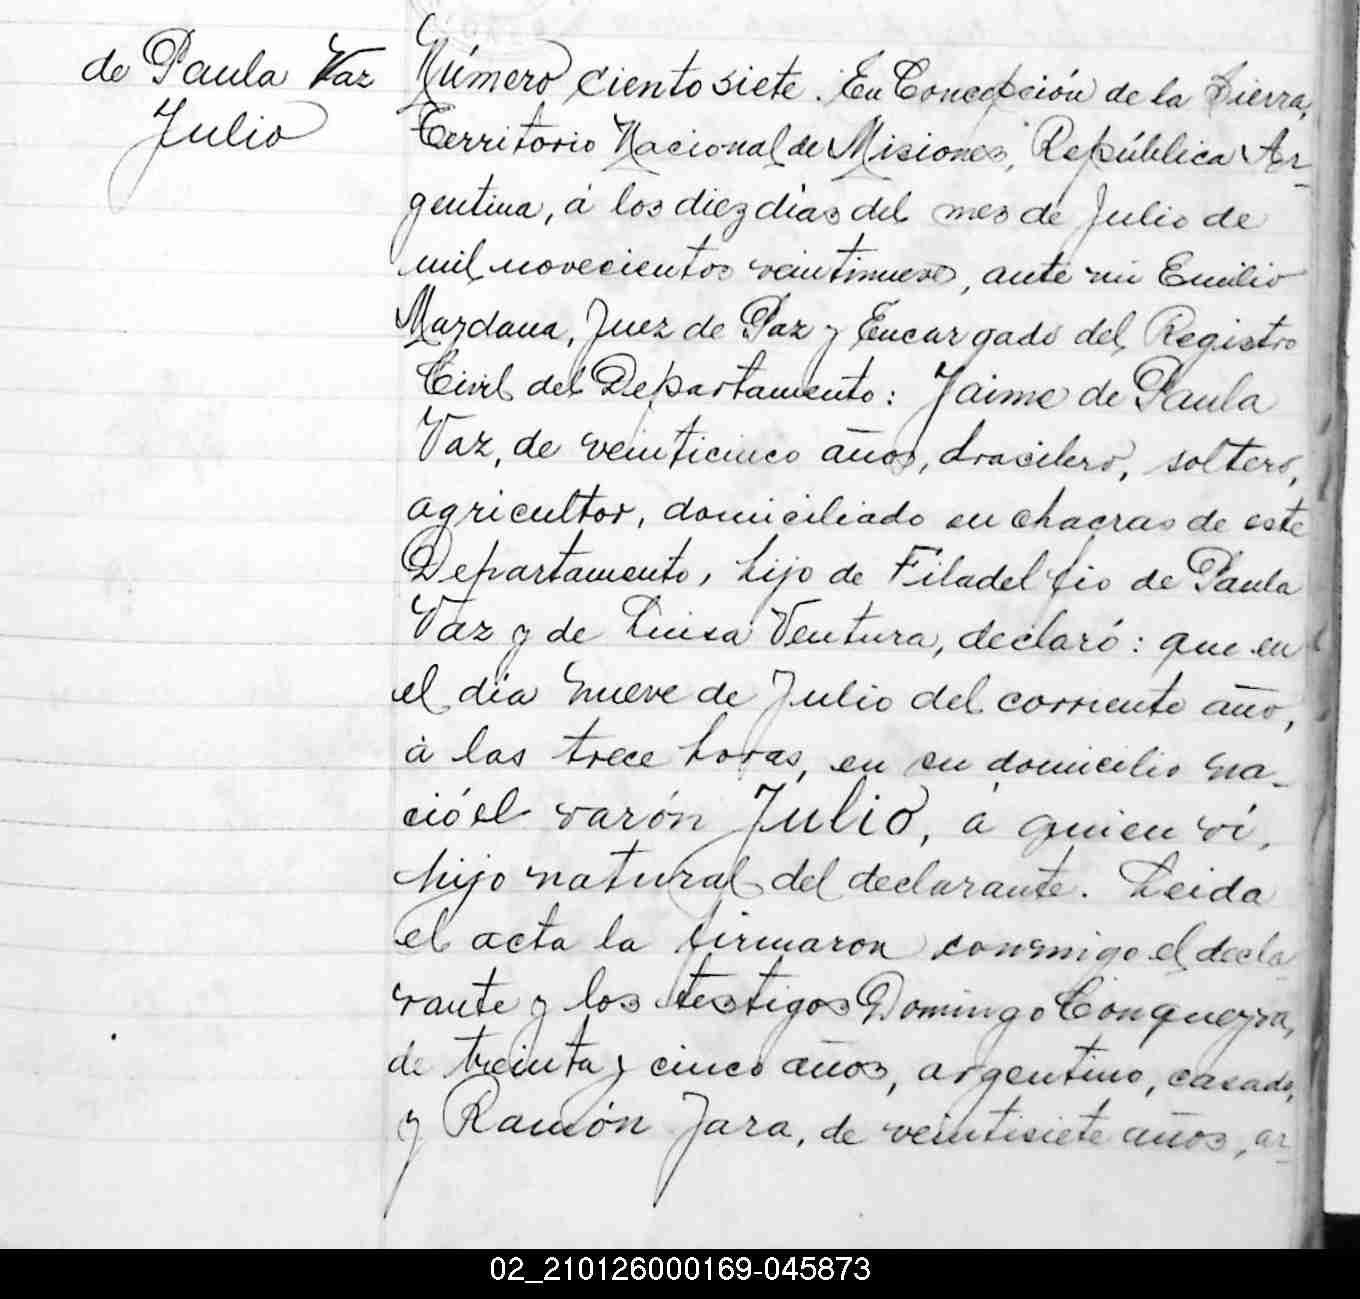 de Paula Vaz
Julio
Número ciento siete. En Concepción de la Sierra,
Territorio Nacional de Misiones, República Ar-
gentina, á los diez dias del mes de Julio de
mil novecientos veintinueve, ante mi Emilio
Maydana, Juez de Paz y Encargado del Registro
Civil del Departamento: Jaime de Paula
Vaz, de veinticinco años, brasilero, soltero,
agricultor, domiciliado en chacras de este
Departamento, hijo de Filadelfio de Paula
Vaz y de Luisa Ventura, declaró: que en
el día nueve de Julio del corriente año,
á las trece horas, en su domicilio na-
ció el varón Julio, á quien ví,
hijo natural del declarante. Leida
el acta la firmaron conmigo el decla-
rante y los testigos Domingo Conqueyra,
de treinta y cinco años, argentino, casado,
y Ramón Jara, de veintisiete años, ar-
02_210126000169-045873